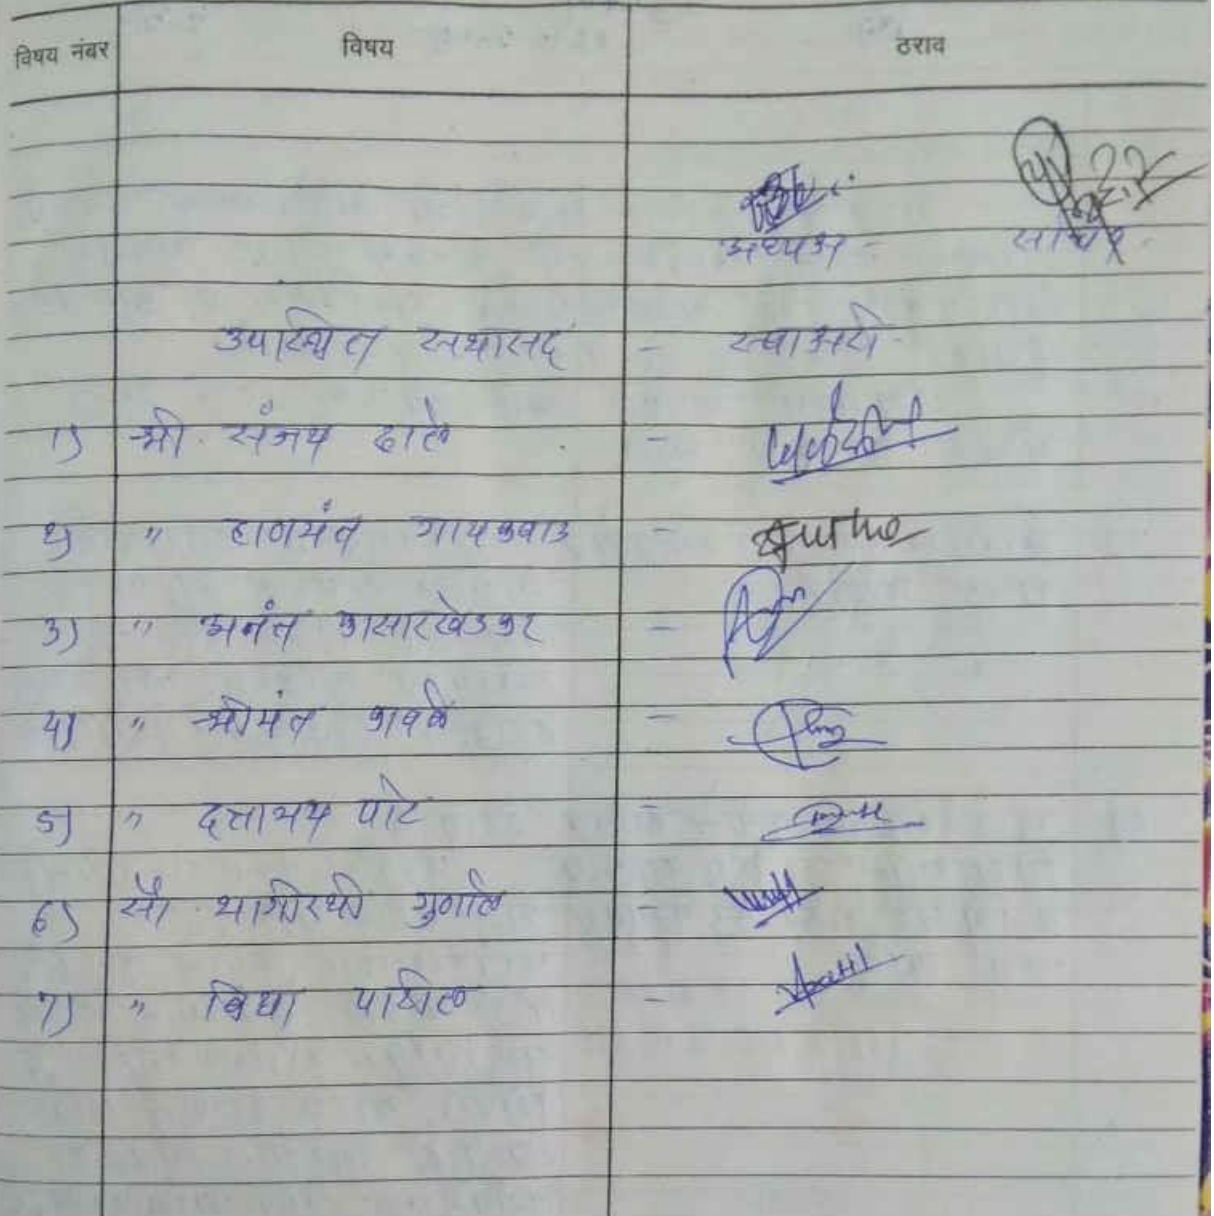 विषय नंबर विषय ठराव
अध्यक्ष - सचिव.
उपस्थित सभासद - स्वाक्षरी
1) श्री. संजय ढाले -
2) " हाणमंत गायकवाड -
3) " अनंत कासारखेडकर -
4) " श्रीमंत कावळे -
5) " दत्तात्रय पोटे -
6) सौ. भागीरथी गुणाले -
7) " विद्या पाटील -